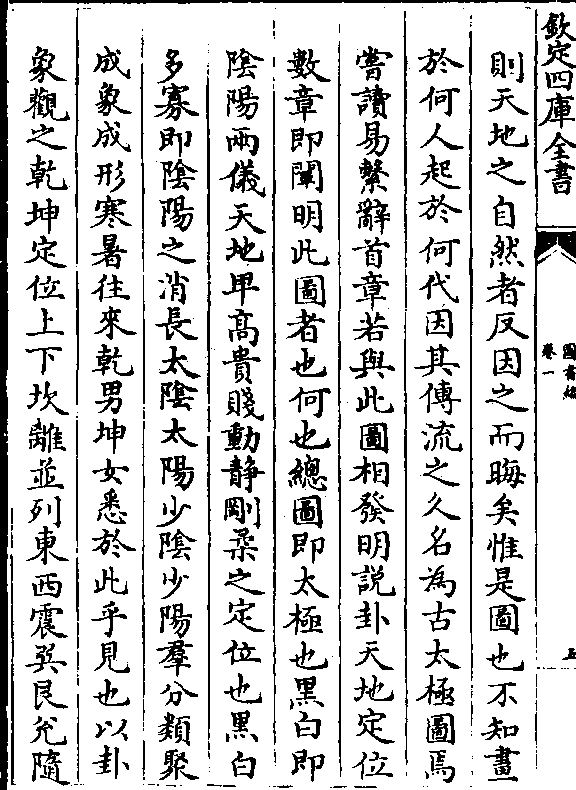 欽定四庫全書
圖書編
卷一
五
則天地之自然者反因之而晦矣惟是圖也不知畫
於何人起於何代因其傳流之久名為古太極圖焉
嘗讀易繫辭首章若與此圖相發明説卦天地定位
數章即闡明此圖者也何也總圖即太極也黑白即
陰陽兩儀天地甲高貴賤動静剛柔之定位也黑白
多寡即陰陽之消長太陰太陽少陰少陽羣分類聚
成象成形寒暑往來乾男坤女悉於此乎見也以卦
象觀之乾坤定位上下坎離並列東西震巽艮兊隨